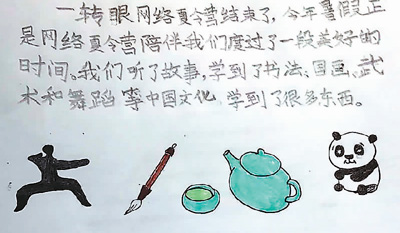 一转眼网络夏令营结束了,今年暑假正
是网络夏令营陪伴我们度过了一段美好的
时间。我们听了故事,学到了书法、国画、武
术和舞蹈等中国文化,学到了很多东西。